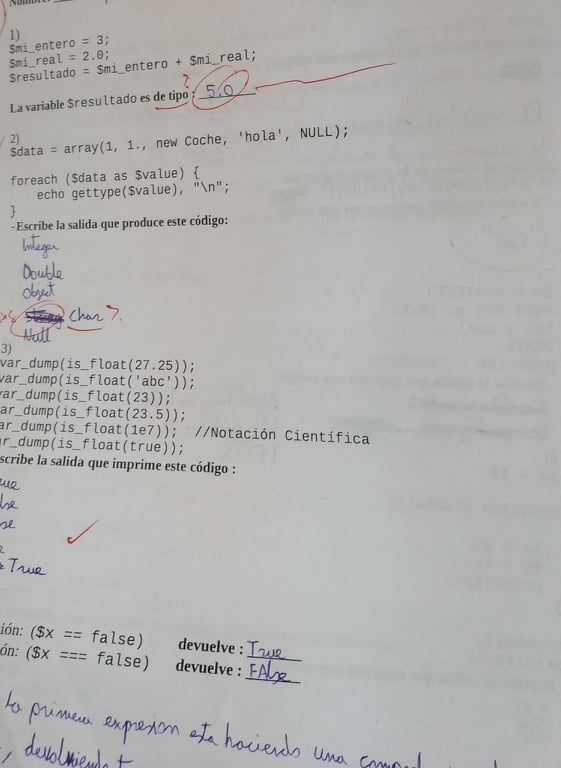 1)
$mi_entero = 3;
$mi_real = 2.0;
$resultado = $mi_entero + $mi_real;
?
La variable $resultado es de tipo : 5.0
2)
$data = array(1, 1., new Coche, 'hola', NULL);
foreach ($data as $value) {
echo gettype($value), "\n";
}
-Escribe la salida que produce este código:
Integer
Double
object
Char ?
Null
3)
var_dump(is_float(27.25));
var_dump(is_float('abc'));
ar_dump(is_float(23));
ar_dump(is_float(23.5));
ar_dump(is_float(1e7)); //Notación Científica
ar_dump(is_float(true));
scribe la salida que imprime este código :
rue
lse
se
e
True
ión: ($x == false) devuelve : True
ón: ($x === false) devuelve : FAlse
La primera expresion esta haciendo una